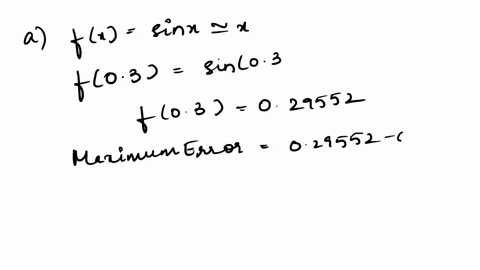 a) f(x) = sinx ≃ x
f(0.3) = sin(0.3
f(0.3) = 0.29552
Maximum Error = 0.29552 -